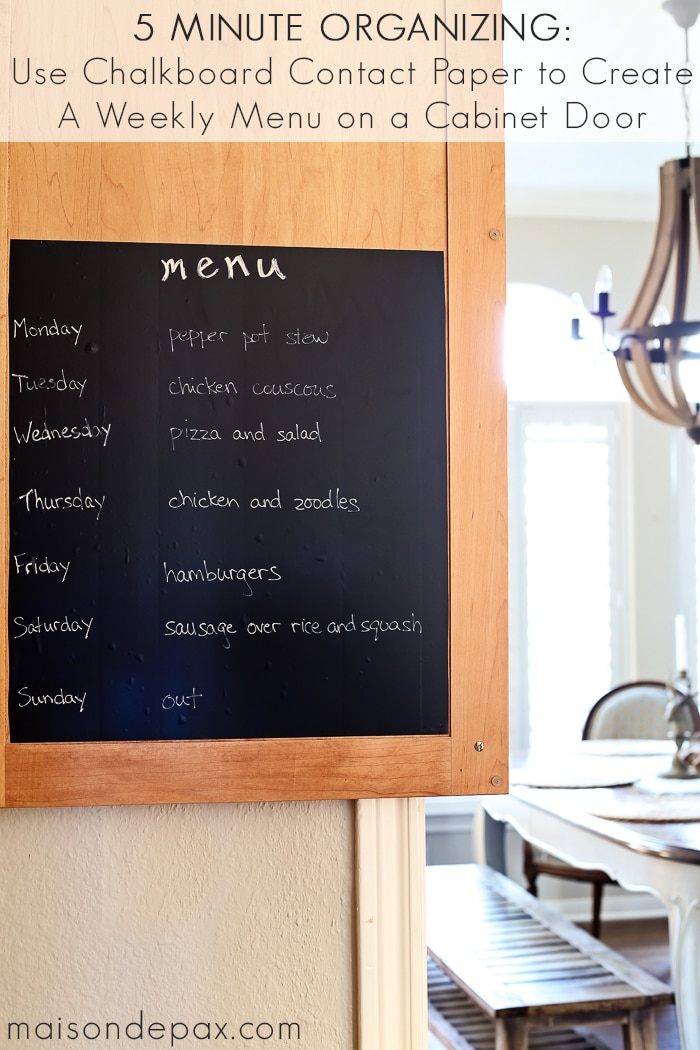 5 MINUTE ORGANIZING:
Use Chalkboard Contact Paper to Create
A Weekly Menu on a Cabinet Door
menu
Monday pepper pot stew
Tuesday chicken couscous
Wednesday pizza and salad
Thursday chicken and zoodles
Friday hamburgers
Saturday sausage over rice and squash
Sunday out
maisondepax.com